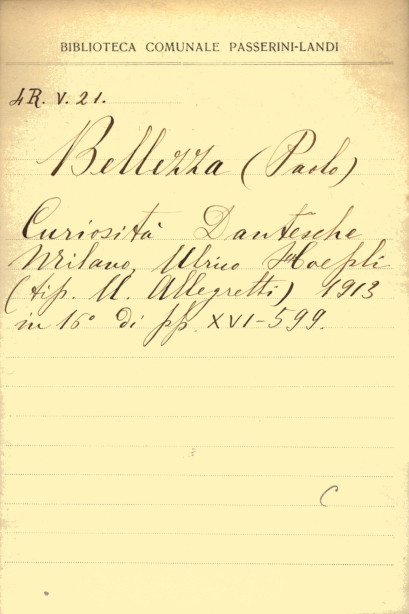 BIBLIOTECA COMUNALE PASSERINI-LANDI
4R. V. 21.
Bellezza (Paolo)
Curiosità Dantesche
Milano, Ulrico Hoepli
(tip. U. Allegretti) 1913
in 16° di pp. XVI-599.
C